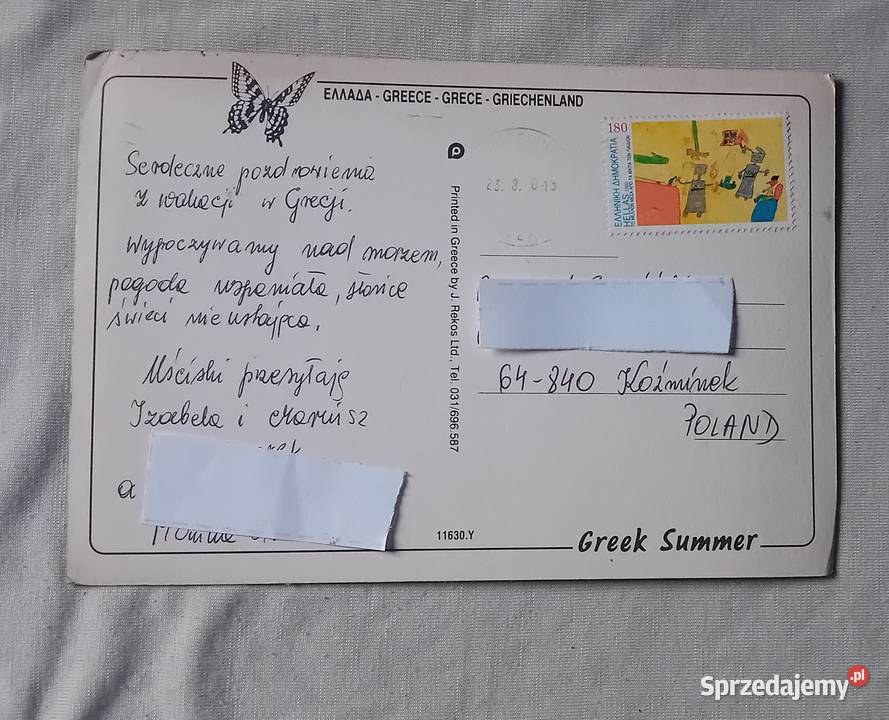 ΕΛΛΑΔΑ - GREECE - GRECE - GRIECHENLAND
Serdeczne pozdrowienia
z wakacji w Grecji.
Wypoczywamy nad morzem,
pogoda wspaniała, słońce
świeci nieustająco.
Uściski przesyłają
Izabela i Mariusz
a
Printed in Greece by J. Rekos Ltd., Tel. 031/696.587
180
ΕΛΛΗΝΙΚΗ ΔΗΜΟΚΡΑΤΙΑ
HELLAS
64-840 Koźminek
POLAND
11630.Y
Greek Summer
Sprzedajemy.pl